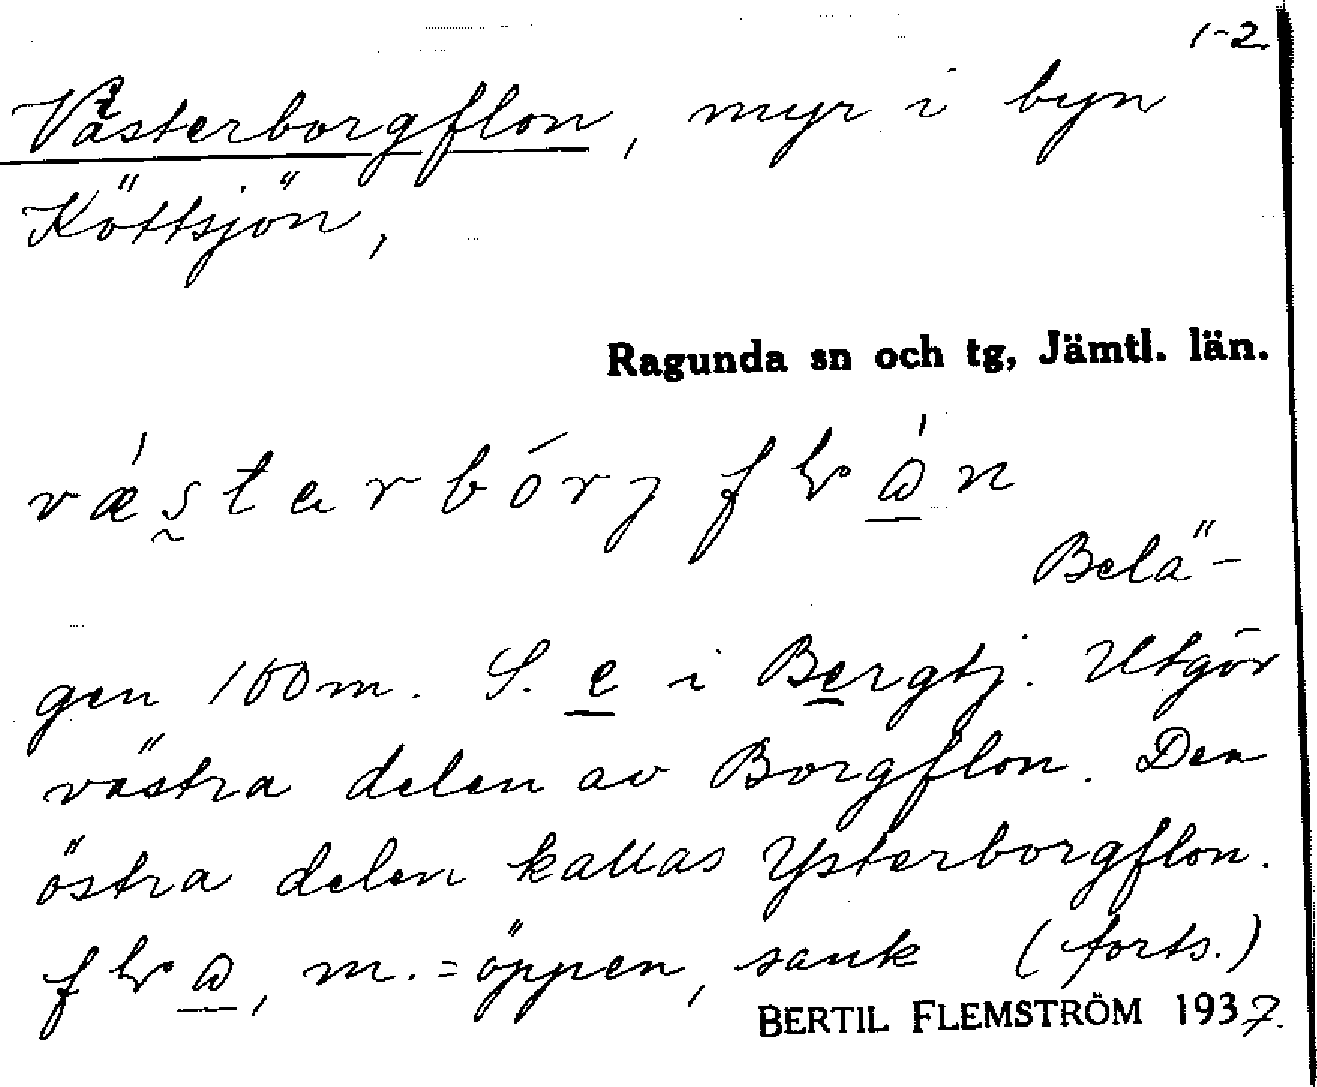 1-2.
Västerborgflon, myr i byn
Köttsjön,
Ragunda sn och tg, Jämtl. län.
Belä-
gen 100 m. S. e i Bergtj. Utgör
västra delen av Borgflon. Den
östra delen kallas Ysterborgflon.
m. = öppen, sank (forts.)
BERTIL FLEMSTRÖM 1937.